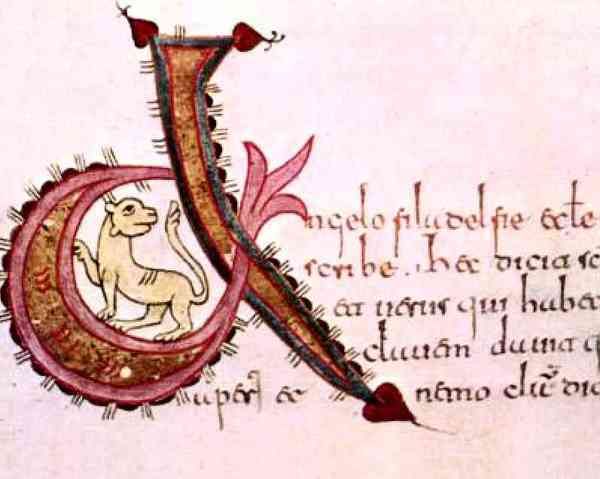 Angelo filadelfie ecle
scribe. hec dicit sc
et uerus qui habe
clauem dauid q
aperit et nemo clu̅ dic